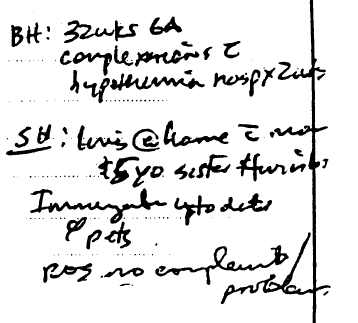 BH: 32wks GA
complexscions c̄
hypothermia hosp x 2wks
SH: lives @ home c̄ mo
5yo sister
Immunizate uptodate
∅ pets
ROS no complaints/
problems